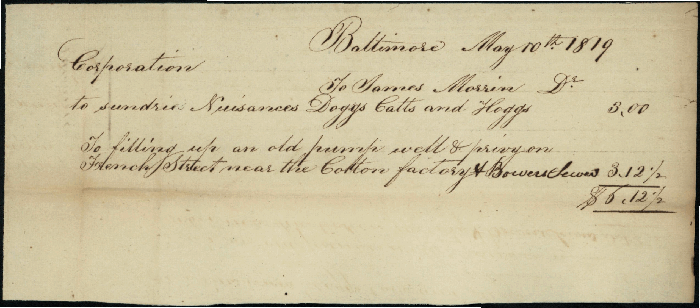 Baltimore May 10th 1819
Corporation
To James Morrin Dr
to sundrie Nuisances Doggs Catts and Hoggs 3,00
To filling up an old pump well & privy on
French Street near the Cotton factory & Bowers Sewer 3.12 1/2
$6,12 1/2